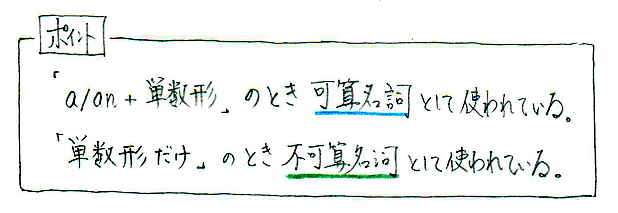 ポイント
「a/an + 単数形」のとき可算名詞として使われている。
「単数形だけ」のとき不可算名詞として使われている。